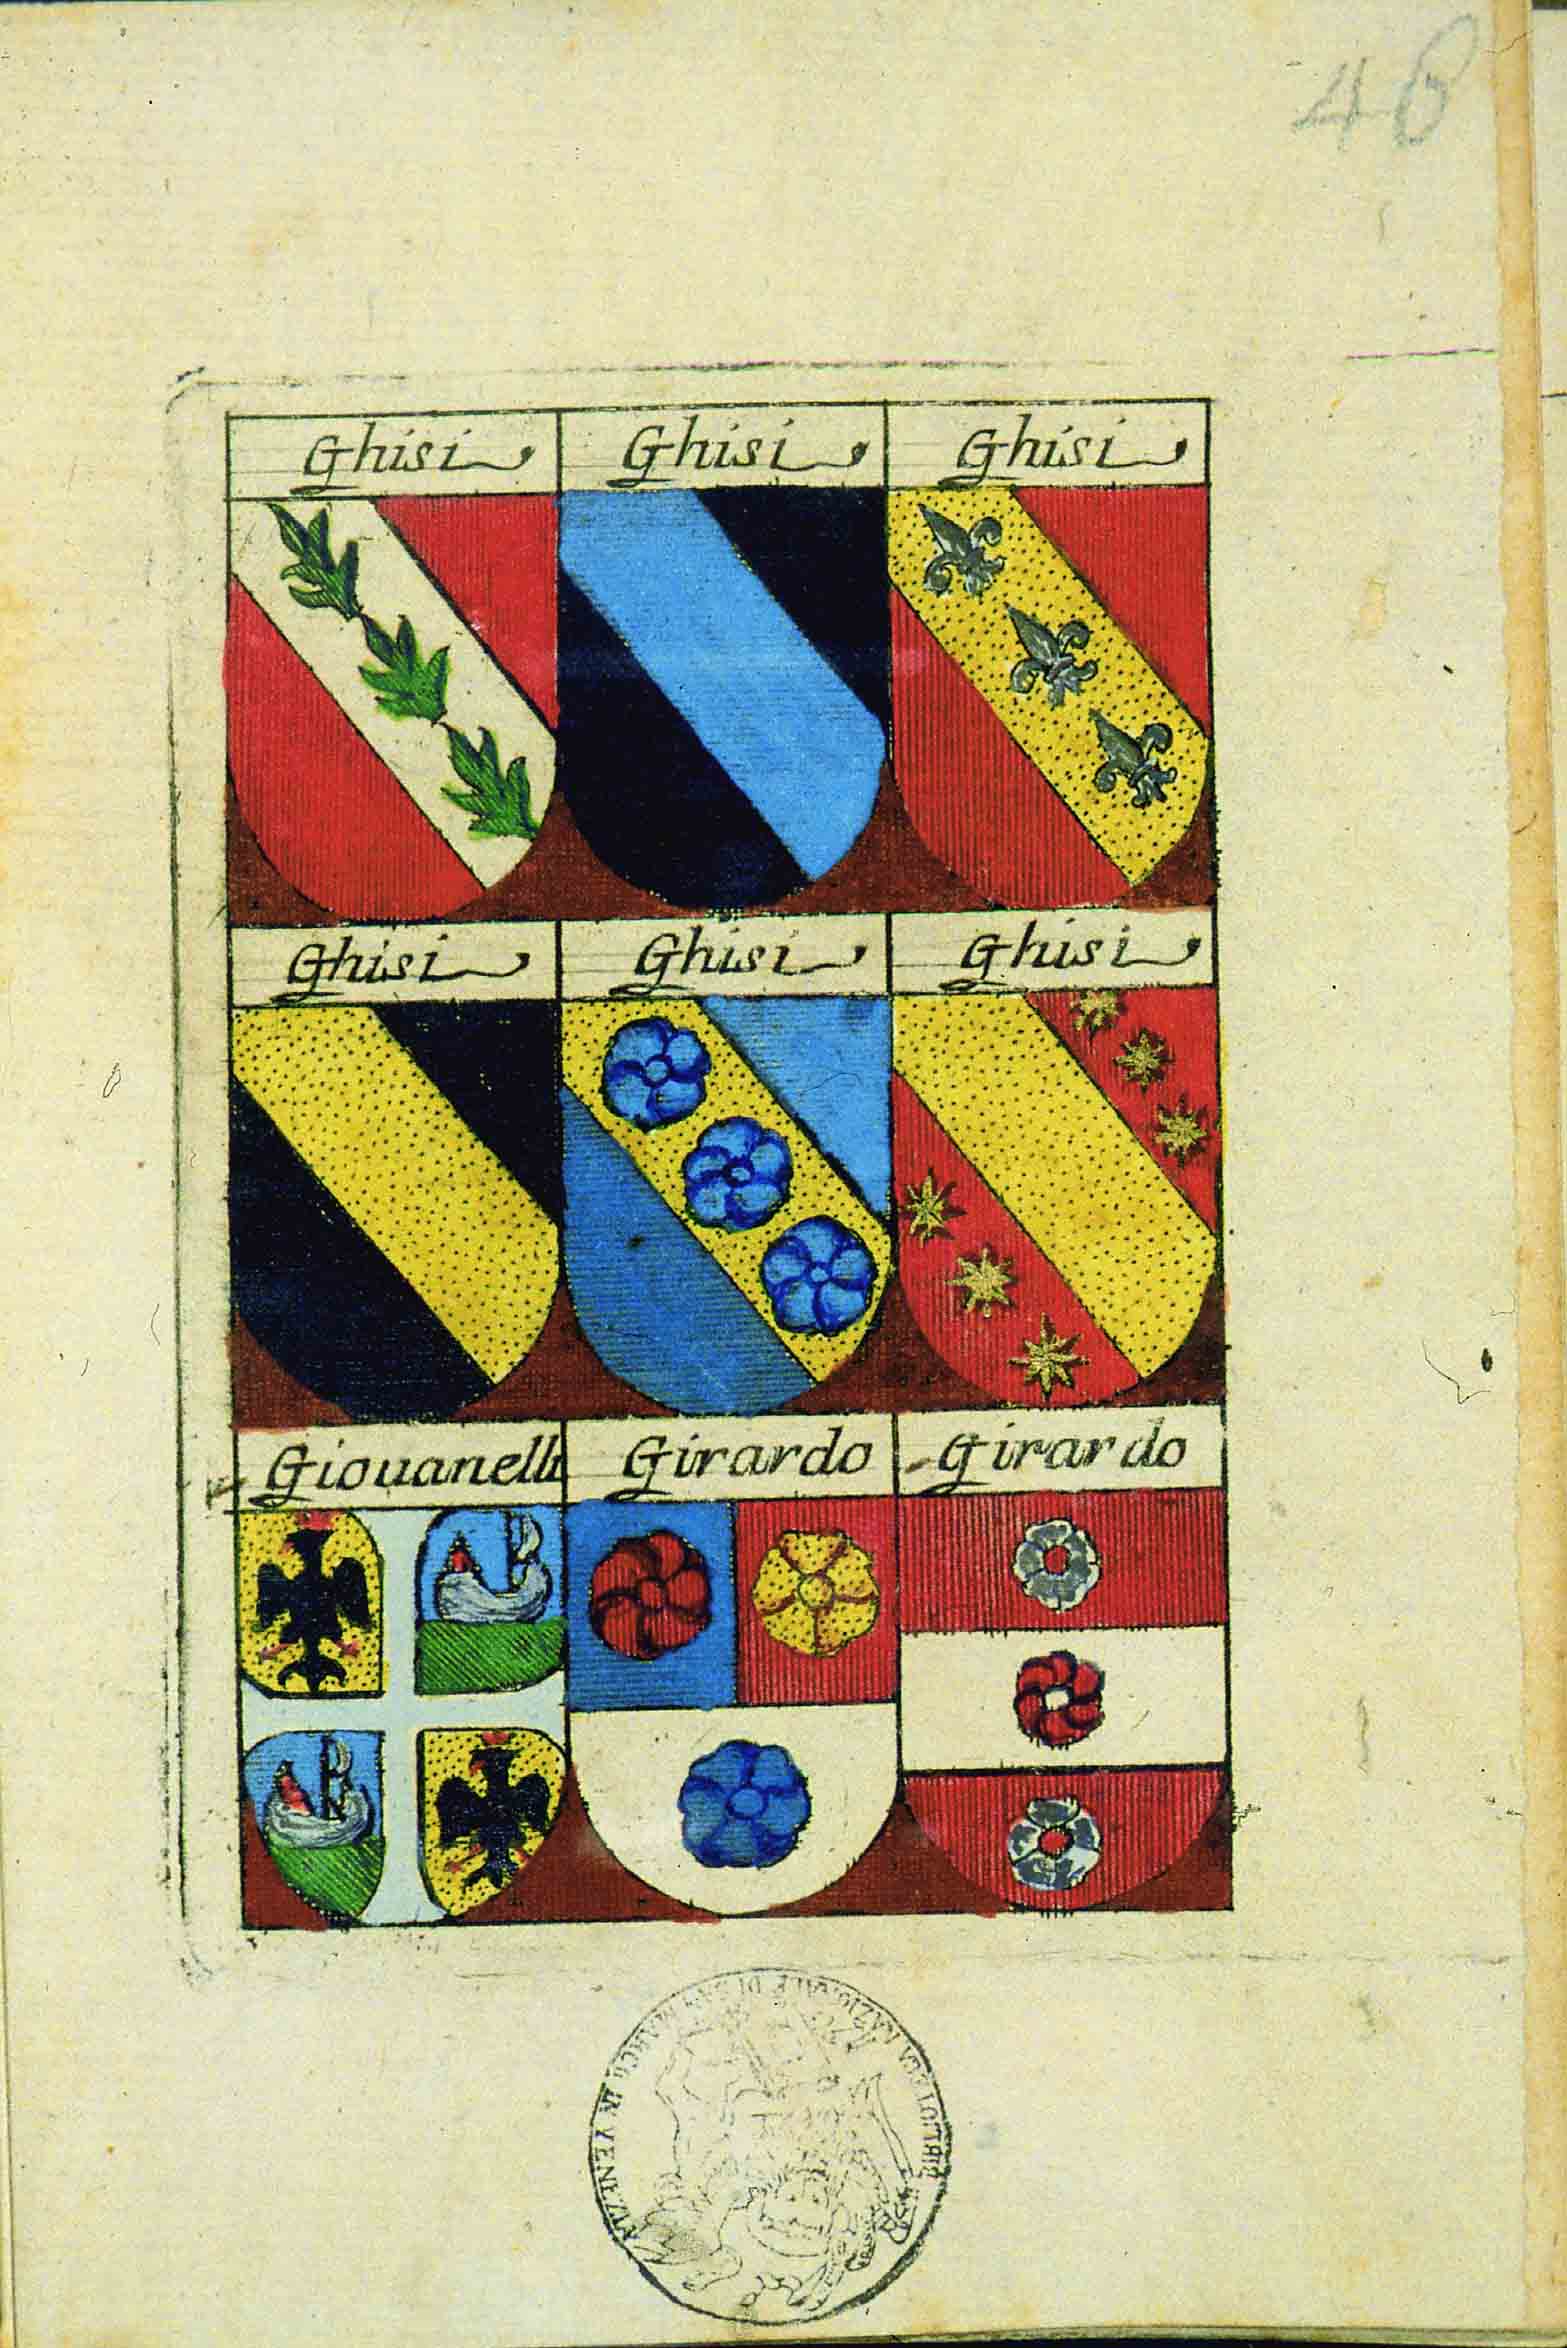 46
Ghisi Ghisi Ghisi
Ghisi Ghisi Ghisi
Giouanelli Girardo Girardo
BIBLIOTECA NAZIONALE DI SAN MARCO IN VENEZIA